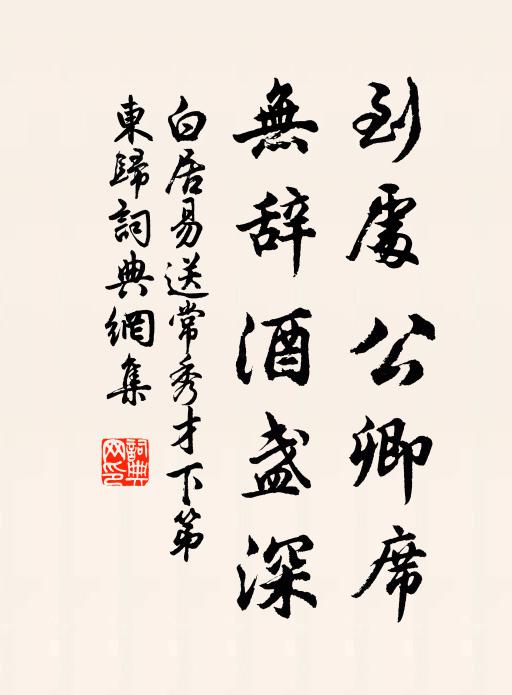 到處公卿席
無辞酒盏深
白居易送常秀才下第
東歸詞典網集
詞典
网印